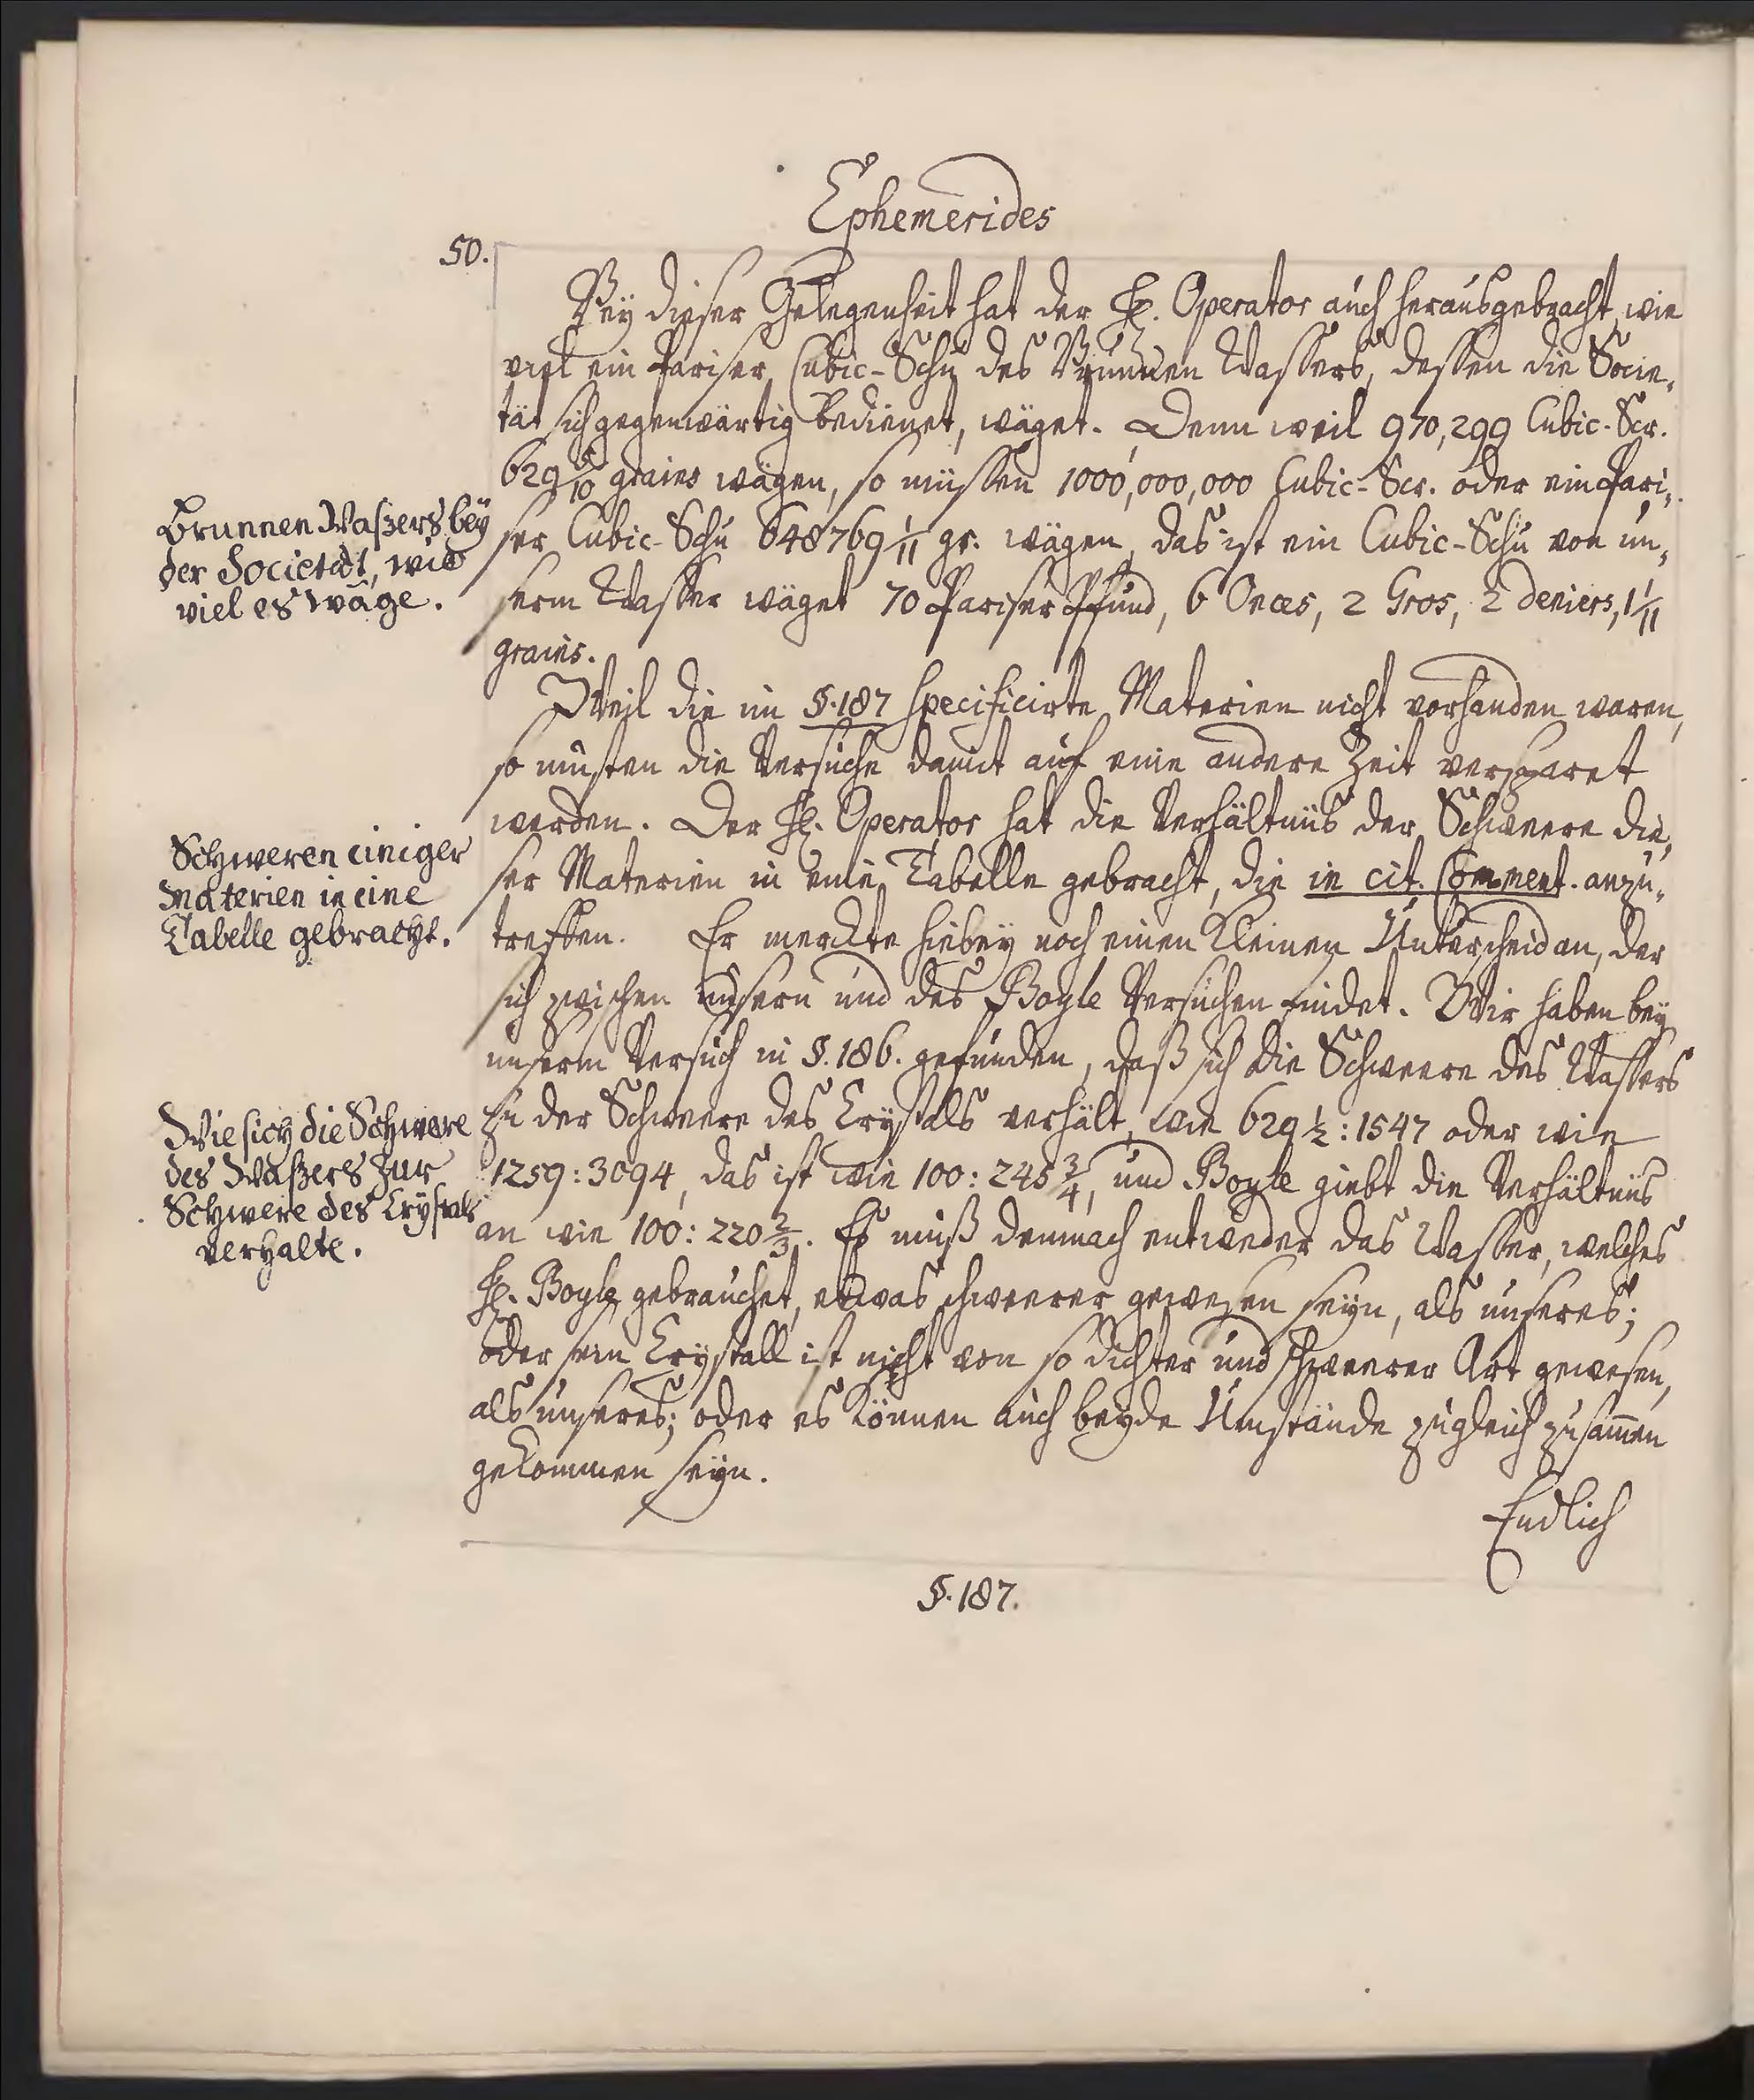 Ephemerides
50.
Bey dieser Gelegenheit hat der H. Operator auch herausgebracht, wie
viel ein Pariser Cubic-Schu des Brunnen Wassers, dessen die Socie-
tät sich gegenwärtig bedienet, wäget. Denn weil 970,299 Cubic-Scr.
629 5/10 grains wägen, so müssen 1000,000,000 Cubic-Scr. oder ein Pari-
ser Cubic-Schu 648769 1/11 gr. wägen, das ist ein Cubic-Schu von un-
serm Wasser wäget 70 Pariser Pfund, 6 Onces, 2 Gros, 2 deniers, 1 1/11
grains.
Brunnen Waßers bey
der Societät, wie
viel es wäge.
Weil die im §.187 specificirte Materien nicht vorhanden waren,
so musten die Versuche damit auf eine andere Zeit versparet
werden. Der H. Operator hat die Verhältnüs der Schweere die-
ser Materien in eine Tabelle gebracht, die in cit. Comment. anzu-
treffen. Er merckte hiebey noch einen kleinen Unterscheid an, der
sich zwischen unsern und des Boyle Versuchen findet. Wir haben bey
unserm Versuch in §.186. gefunden, daß sich die Schweere des Wassers
zu der Schweere des Crystals verhält, wie 629 1/2 : 1547 oder wie
1259 : 3094, das ist wie 100 : 245 3/4, und Boyle giebt die Verhältnüs
an wie 100 : 220 2/3. Es muß demnach entweder das Wasser, welches
H. Boyle gebrauchet, etwas schweerer gewesen seyn, als unseres;
oder sein Crystall ist nicht von so dichter und schweerer Art gewesen,
als unseres; oder es können auch beyde Umstände zugleich zusam̄en
gekommen seyn.
Schweren einiger
Materien in eine
Tabelle gebracht.
Wie sich die Schwere
des Waßers zur
Schwere des Crystals
verhalte.
Endlich
§.187.